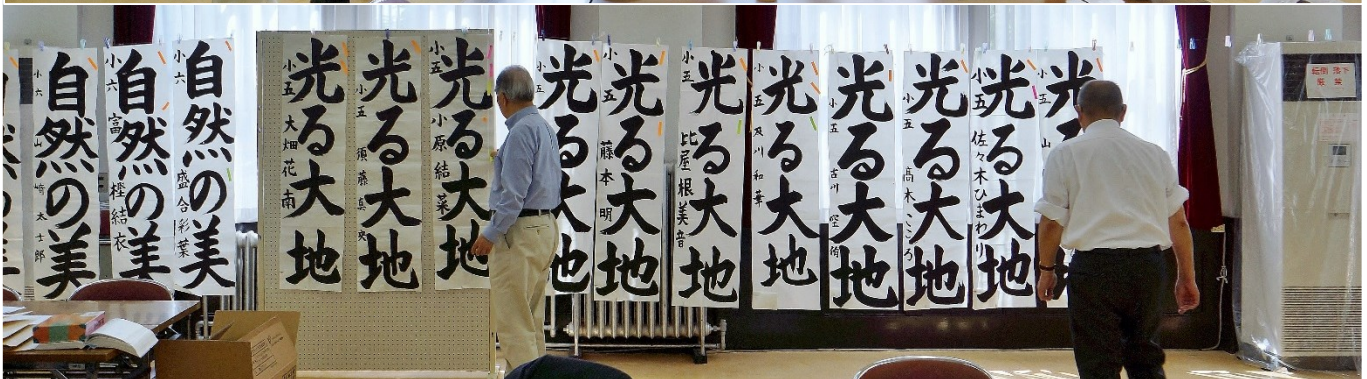 自然の美
小六 山﨑太士郎
自然の美
小六 富樫結衣
自然の美
小六 盛合彩葉
光る大地
小五 大畑花南
光る大地
小五 須藤真央
光る大地
小五 小原結菜
光る大地
小五
光る大地
小五 藤本明
光る大地
小五 比屋根美音
光る大地
小五 及川和華
光る大地
小五 古川空侑
光る大地
小五 高木こころ
光る大地
小五 佐々木ひまわり
光
小五 山
転倒 落下
厳禁